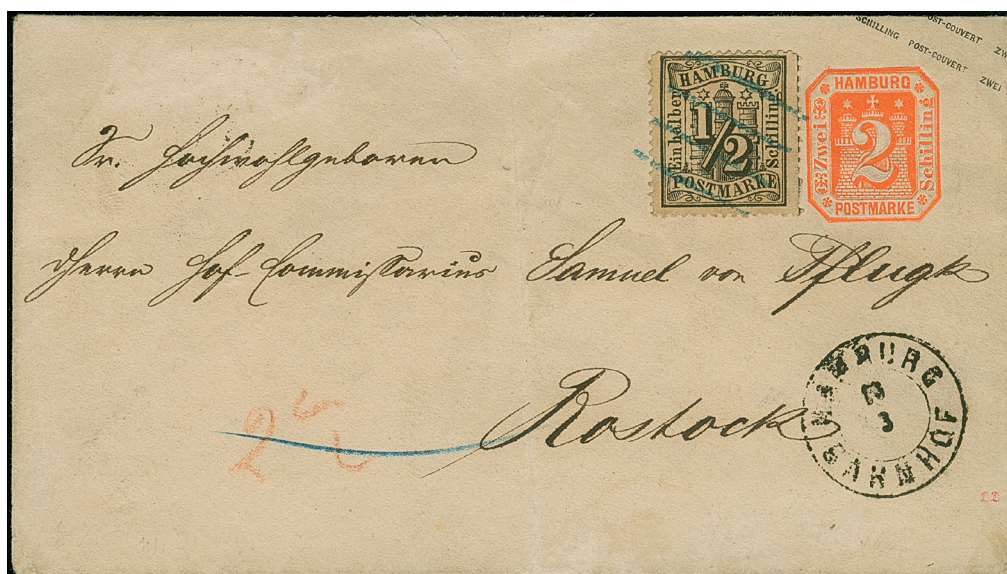 ST-COUVERT ZW
SCHILLING POST-COUVERT ZWEI
HAMBURG
Ein halber
1/2
Schilling
POSTMARKE
HAMBURG
Zwei
2
Schilling
POSTMARKE
Sr. Hochwohlgeboren
Herrn Hof-Commissarius Samuel von Pflugk
Rostock
HAMBURG
3
BAHNHOF
2
12